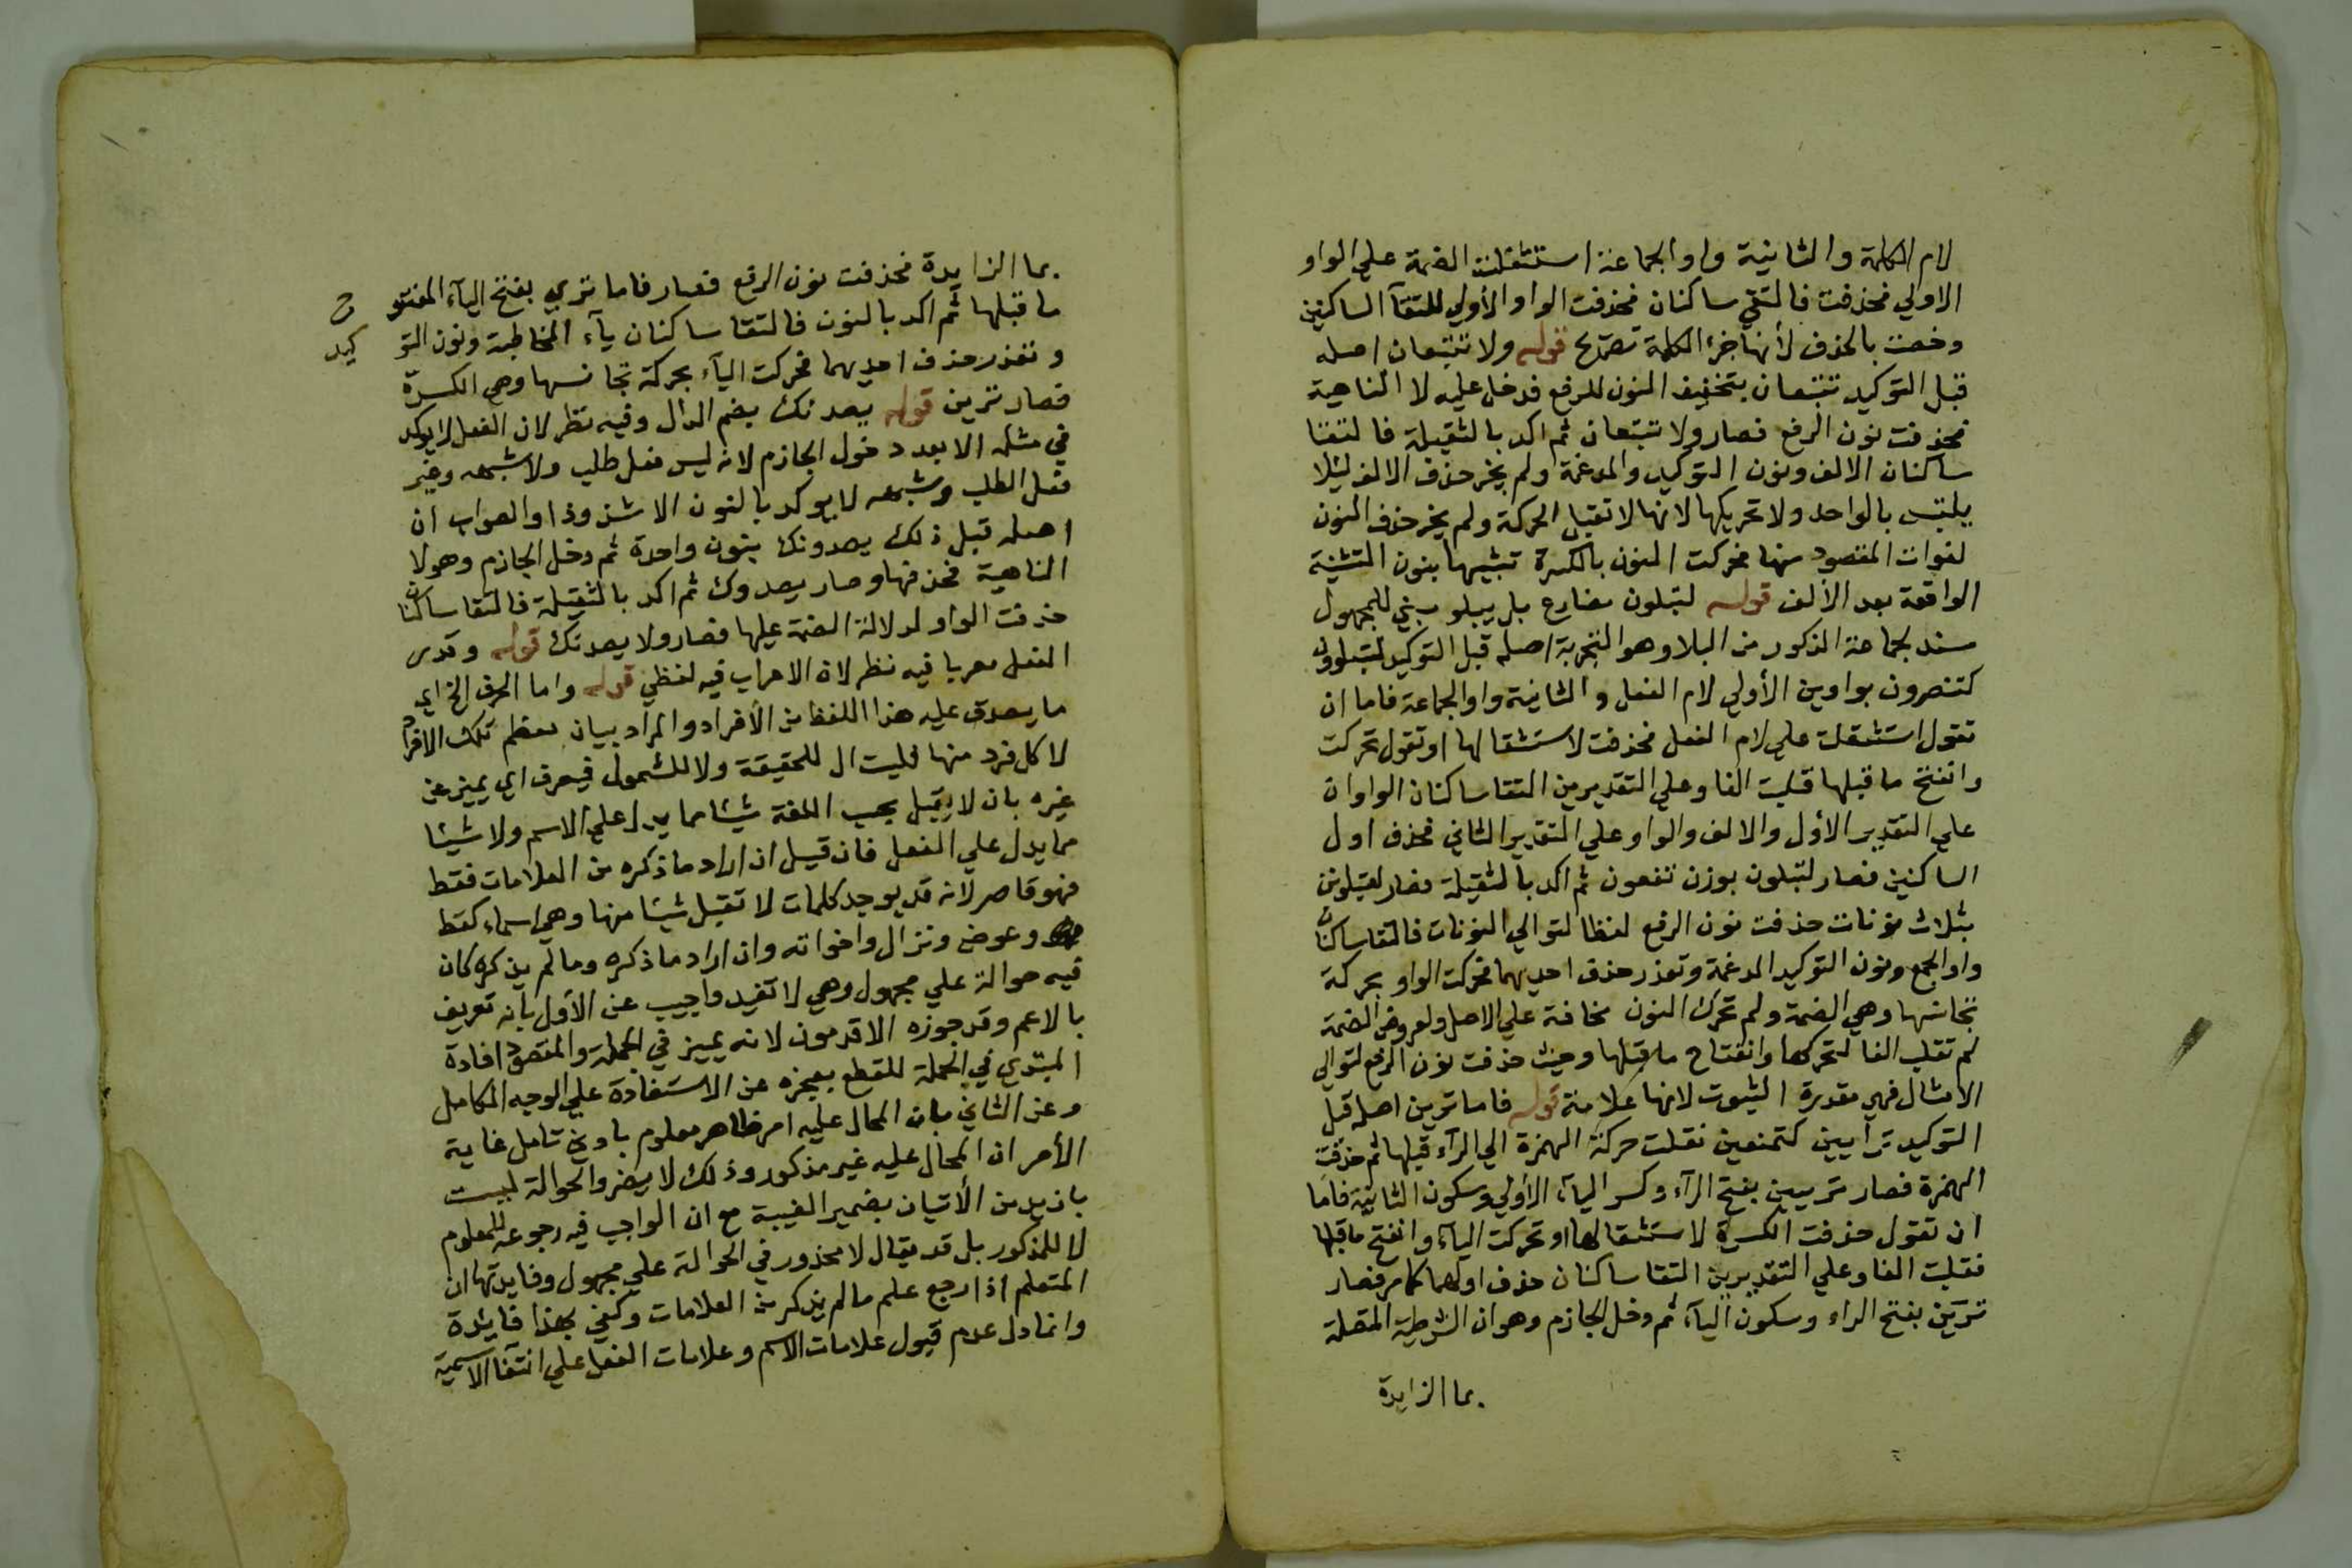 لام الكلمة والثانية واو الجماعة استثقلت الضمة علي الواو
الاولي فحذفت فالتقي ساكنان فحذفت الواو الأولي للتقآ الساكنين
وخصت بالحذف لأنها جزء الكلمة تصريح قوله ولا تتبعان اصله
قبل التوكيد تتبعان بتخفيف النون للرفع فدخل عليه لا الناهية
فحذفت نون الرفع فصار ولا تتبعان ثم اكد بالثقيلة فالتقتا
ساكنان الالف ونون التوكيد والمدغمة ولم يخر حذف الالف لئلا
يلتبس بالواحد ولا تحريكها لانها لا تقبل الحركة ولم يخر حذف النون
لفوات المقصود منها فحركت النون بالكسرة تشبيها بنون التثنية
الواقعة بعد الألف قوله لتبلون مضارع بلي يبلو بني للمجهول
مسند لجماعة الذكور من البلا وهو التجربة اصله قبل التوكيد لتبلوون
كتنصرون بواوين الأولي لام الفعل والثانية واو الجماعة فاما ان
تقول استثقلت علي لام الفعل فحذفت لاستثقالها او تقول تحركت
وانفتح ما قبلها قلبت الفا وعلي التقديرين التقا ساكنان الواوان
علي التقدير الأول والالف والواو علي التقدير الثاني فحذف اول
الساكنين فصار لتبلون بوزن تفعون ثم اكد بالثقيلة فصار لتبلونن
بثلاث نونات حذفت نون الرفع لفظا لتوالي النونات فالتقا ساكنان
واو الجمع ونون التوكيد المدغمة وتعذر حذف احديهما فحركت الواو بحركة
تجانسها وهي الضمة ولم تحرك النون مخافة علي الاصل ولعروض الضمة
لم تقلب الفا لتحركها وانفتاح ما قبلها وحيث حذفت نون الرفع لتوالي
الامثال فهي مقدرة الثبوت لانها علامة قوله فاما ترين اصله قبل
التوكيد ترأيين كتمنعين نقلت حركة الهمزة الي الرآء قبلها ثم حذفت
الهمزة فصار تريين بفتح الرآء وكسر اليآء الأولي وسكون الثانية فاما
ان تقول حذفت الكسرة لاستثقالها او تحركت اليآء وانفتح ما قبلها
فقلبت الفا وعلي التقديرين التقا ساكنان حذف اولهما كما مر فصار
ترين بفتح الراء وسكون اليآء ثم دخل الجازم وهو ان الشرطية المتصلة
بما الزايدة
بما الزايدة فحذفت نون الرفع فصار فاما تري بفتح اليآء المفتوح
ما قبلها ثم اكد بالنون فالتقا ساكنان يآء المخاطبة ونون التوكيد
وتعذر حذف احديهما فحركت اليآء بحركة تجانسها وهي الكسرة
فصار ترين قوله يصدنك بضم الدال وفيه نظر لان الفعل لا يوكد
في مثله الا بعد دخول الجازم لانه ليس فعل طلب ولا شبهه وغير
فعل الطلب وشبهه لا يوكد بالنون الا شذوذا والصواب ان
اصله قبل ذلك يصدونك بنون واحدة ثم دخل الجازم وهو لا
الناهية فحذفها وصار يصدوك ثم اكد بالثقيلة فالتقا ساكنان
حذفت الواو لدلالة الضمة عليها فصار ولا يصدنك قوله وقدر
الفعل معربا فيه نظر لان الاعراب فيه لفظي قوله واما الحرف الخ اي
ما يصدق عليه هذا اللفظ من الأفراد والمراد بيان معظم تلك الافراد
لا كل فرد منها فليست ال للحقيقة ولا للشمول فيعرف اي يميز عن
غيره بان لا يقبل بحسب اللغة شيئا مما يدل علي الاسم ولا شيئا
مما يدل علي الفعل فان قيل ان اراد ما ذكره من العلامات فقط
فهو قاصر لانه قد يوجد كلمات لا تقبل شيئا منها وهي اسماء كقط
وعوض ونزال واخواته وان اراد ما ذكره وما لم يذكره كان
فيه حوالة علي مجهول وهي لا تفيد واجيب عن الأول بأنه تعريف
بالاعم وقد جوزه الاقدمون لانه يميز في الجملة والمقصود افادة
المبتدي في الجملة للقطع بعجزه عن الاستفادة علي الوجه الكامل
وعن الثاني بان المحال عليه امر ظاهر معلوم بادني تامل غاية
الأمر ان المحال عليه غير مذكور وذلك لا يضر والحوالة ليست
بازيد من الأتيان بضمير الغيبة مع ان الواجب فيه رجوعه للمعلوم
لا للمذكور بل قد يقال لا محذور في الحوالة علي مجهول وفايدتها ان
المتعلم اذا رجع علم ما لم يذكر من العلامات وكفي بهذا فائدة
وانما دل عدم قبول علامات الاسم وعلامات الفعل علي انتفآ الاسمية